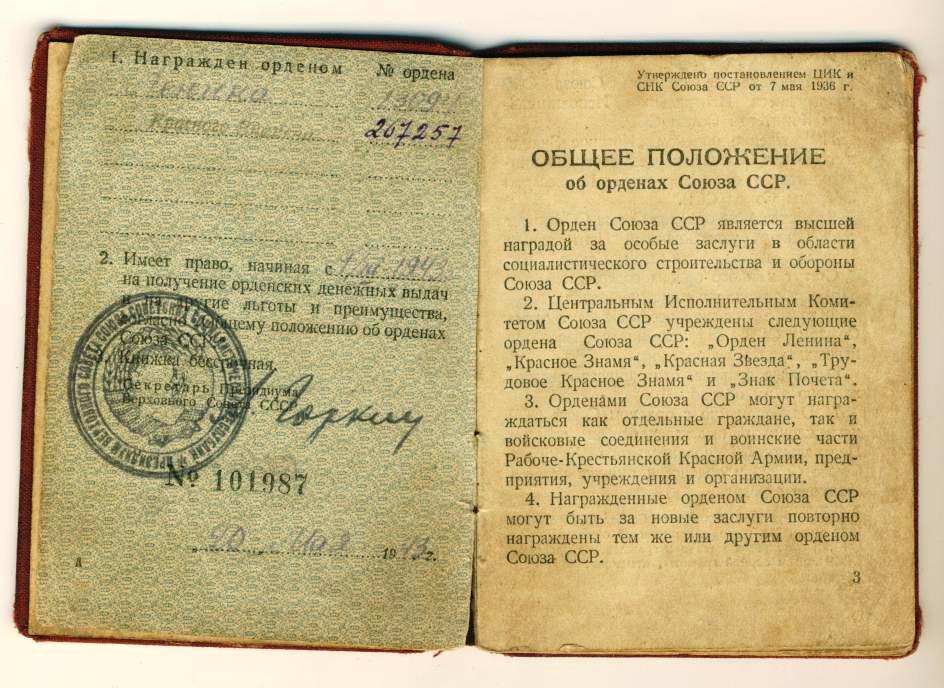 1. Награжден орденом № ордена
Ленина
Красного Знамени 267257
2. Имеет право, начиная с 1943 г.
на получение орденских денежных выдач
и на другие льготы и преимущества,
согласно общему положению об орденах
Союза ССР.
3. Книжка бессрочная.
Секретарь Президиума
Верховного Совета СССР
Горкин
№ 101987
20 мая 1943 г.
А
Утверждено постановлением ЦИК и
СНК Союза ССР от 7 мая 1936 г.
ОБЩЕЕ ПОЛОЖЕНИЕ
об орденах Союза ССР.
1. Орден Союза ССР является высшей
наградой за особые заслуги в области
социалистического строительства и обороны
Союза ССР.
2. Центральным Исполнительным Коми-
тетом Союза ССР учреждены следующие
ордена Союза ССР: „Орден Ленина“,
„Красное Знамя“, „Красная Звезда“, „Тру-
довое Красное Знамя“ и „Знак Почета“.
3. Орденами Союза ССР могут награ-
ждаться как отдельные граждане, так и
войсковые соединения и воинские части
Рабоче-Крестьянской Красной Армии, пред-
приятия, учреждения и организации.
4. Награжденные орденом Союза ССР
могут быть за новые заслуги повторно
награждены тем же или другим орденом
Союза ССР.
3